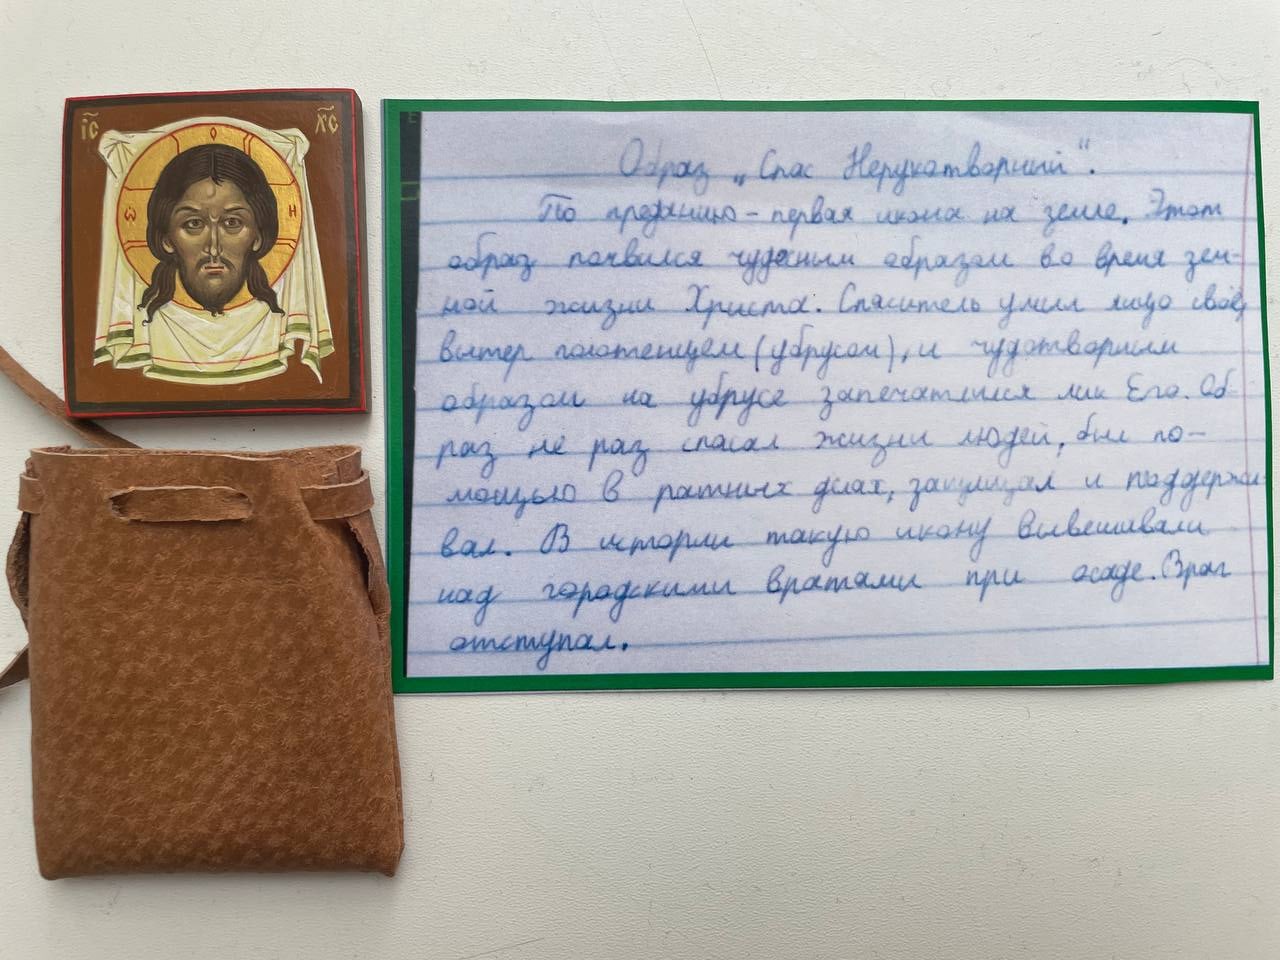 І҃С
Х҃С
Ѡ О Н
Образ „Спас Нерукатворний".
По преданию - первая икона на земле. Этот
образ появился чудесным образом во время зем-
ной жизни Христа. Спаситель умыл лицо своё,
вытер полотенцем (убрусом), и чудотворным
образом на убрусе запечатлился лик Его. Об-
раз не раз спасал жизни людей, был по-
мощью в ратных делах, защищал и поддержи-
вал. В истории такую икону вывешивали
над городскими вратами при осаде. Враг
отступал.